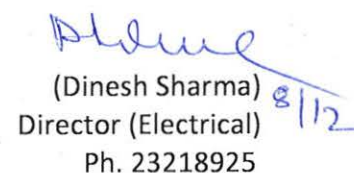 (Dinesh Sharma) 8/12
Director (Electrical)
Ph. 23218925